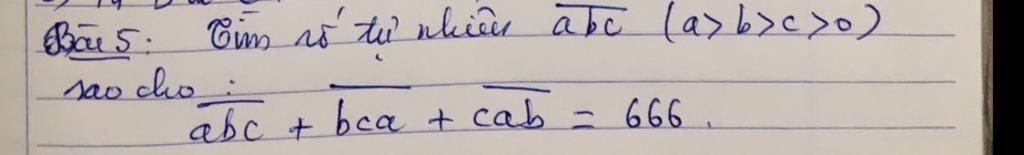 Bài 5: Tìm số tự nhiên abc (a>b>c>0)
sao cho :
abc + bca + cab = 666.